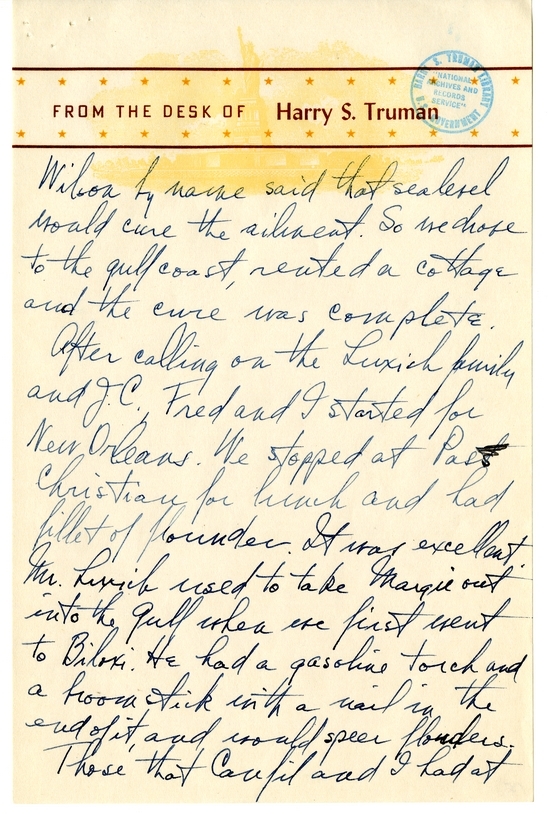 HARRY S. TRUMAN LIBRARY
"NATIONAL
ARCHIVES AND
RECORDS
SERVICE"
U.S. GOVERNMENT
FROM THE DESK OF Harry S. Truman
Wilson by name said that sealevel
would cure the ailment. So we drove
to the gulf coast, rented a cottage
and the cure was complete.
After calling on the Luxich family
and J.C., Fred and I started for
New Orleans. We stopped at Pass
Christian for lunch and had
fillet of flounder. It was excellent.
Mr. Luxich used to take Margie out
into the Gulf when we first went
to Biloxi. He had a gasoline torch and
a broomstick with a nail in the
end of it, and would speer flounders.
Those that Canfil and I had at